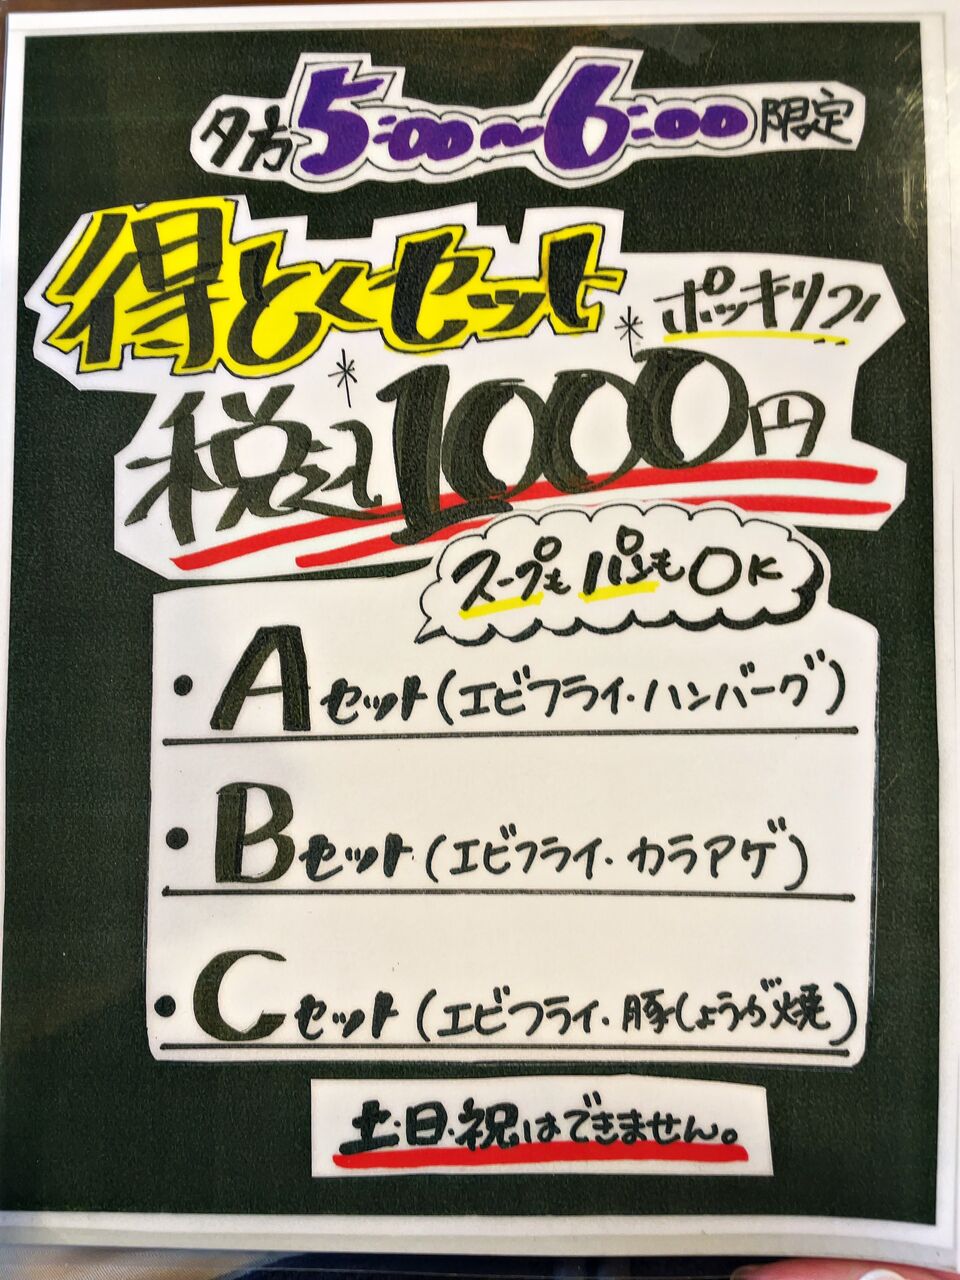 夕方5:00~6:00限定
得とくセット
ポッキリ!
税込1000円
スープもパンもOK
・Aセット(エビフライ・ハンバーグ)
・Bセット(エビフライ・カラアゲ)
・Cセット(エビフライ・豚しょうが焼)
土・日・祝はできません。